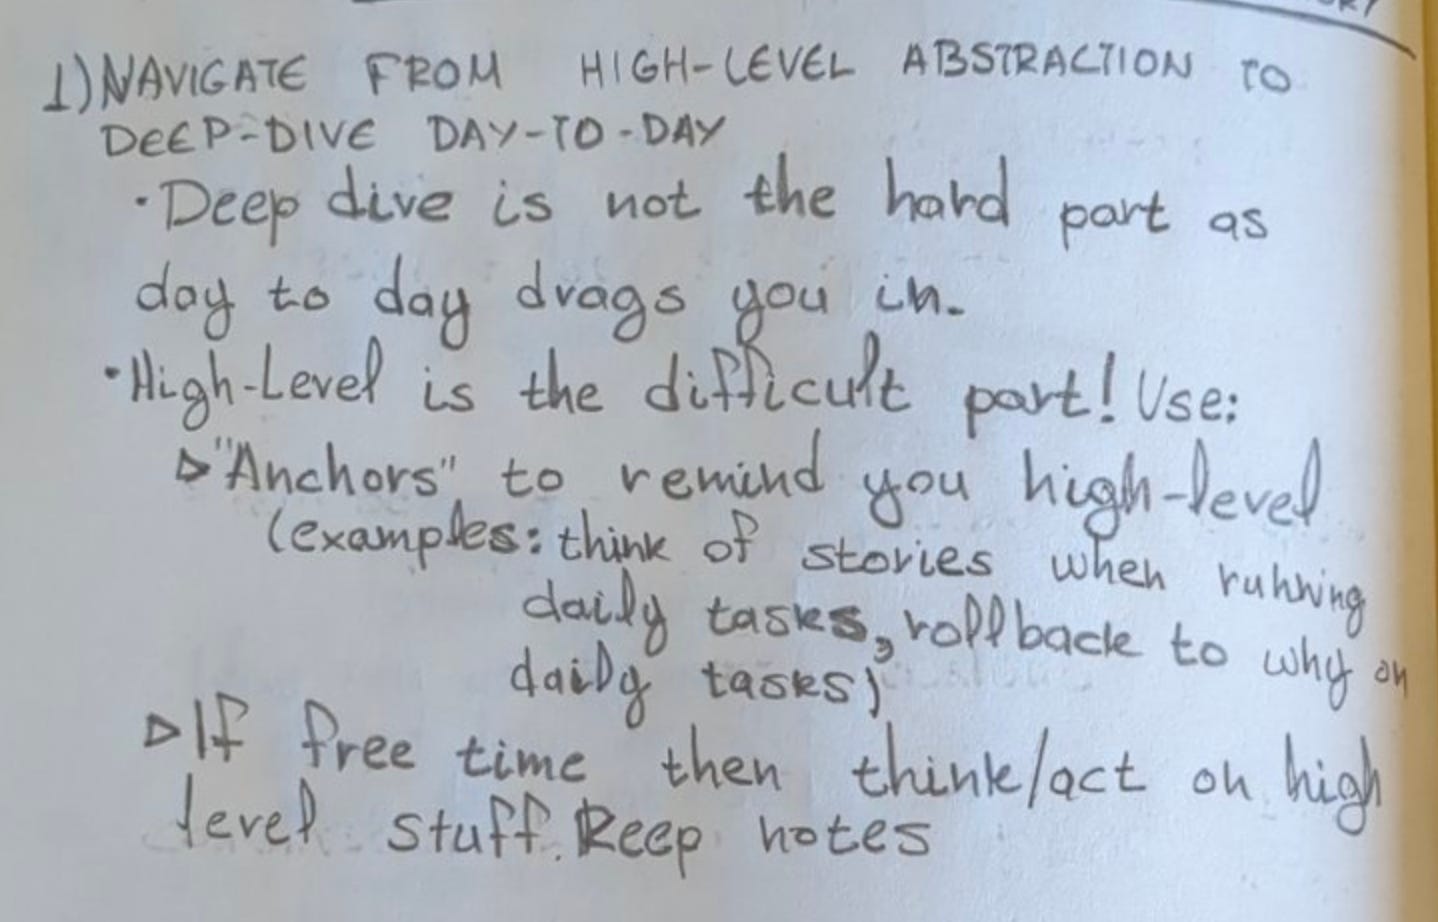 1) NAVIGATE FROM HIGH-LEVEL ABSTRACTION TO
DEEP-DIVE DAY-TO-DAY
· Deep dive is not the hard part as
day to day drags you in.
· High-Level is the difficult part! Use:
▷ "Anchors" to remind you high-level
(examples: think of stories when running
daily tasks, rollback to why on
daily tasks)
▷ If free time then think/act on high
level stuff. Keep notes